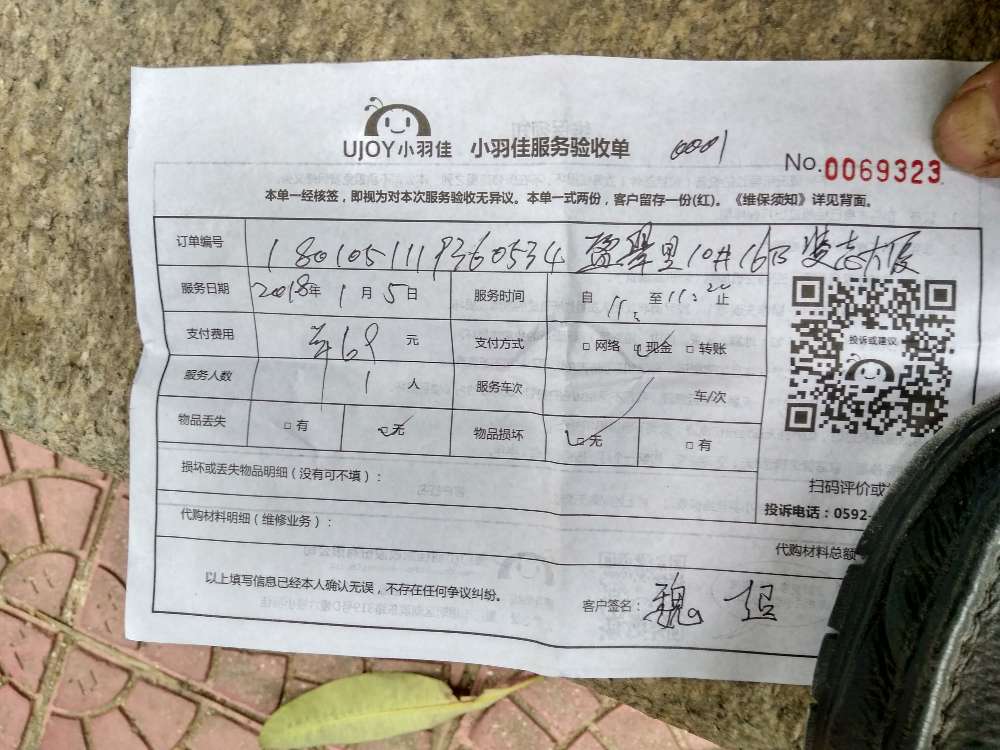 UJOY小羽佳 小羽佳服务验收单 0001
No.0069323
本单一经核签，即视为对本次服务验收无异议。本单一式两份，客户留存一份(红)。《维保须知》详见背面。
订单编号 1801051119360534
服务日期 2018年 1月 5日 服务时间 自 11: 至 11:20 止
支付费用 69 元 支付方式 □网络 □现金 □转账
投诉或建议
服务人数 1 人 服务车次 车/次
物品丢失 □有 □无 物品损坏 □无 □有
损坏或丢失物品明细（没有可不填）：
扫码评价或
投诉电话：0592-
代购材料明细（维修业务）：
代购材料总额
以上填写信息已经本人确认无误，不存在任何争议纠纷。
客户签名： 魏